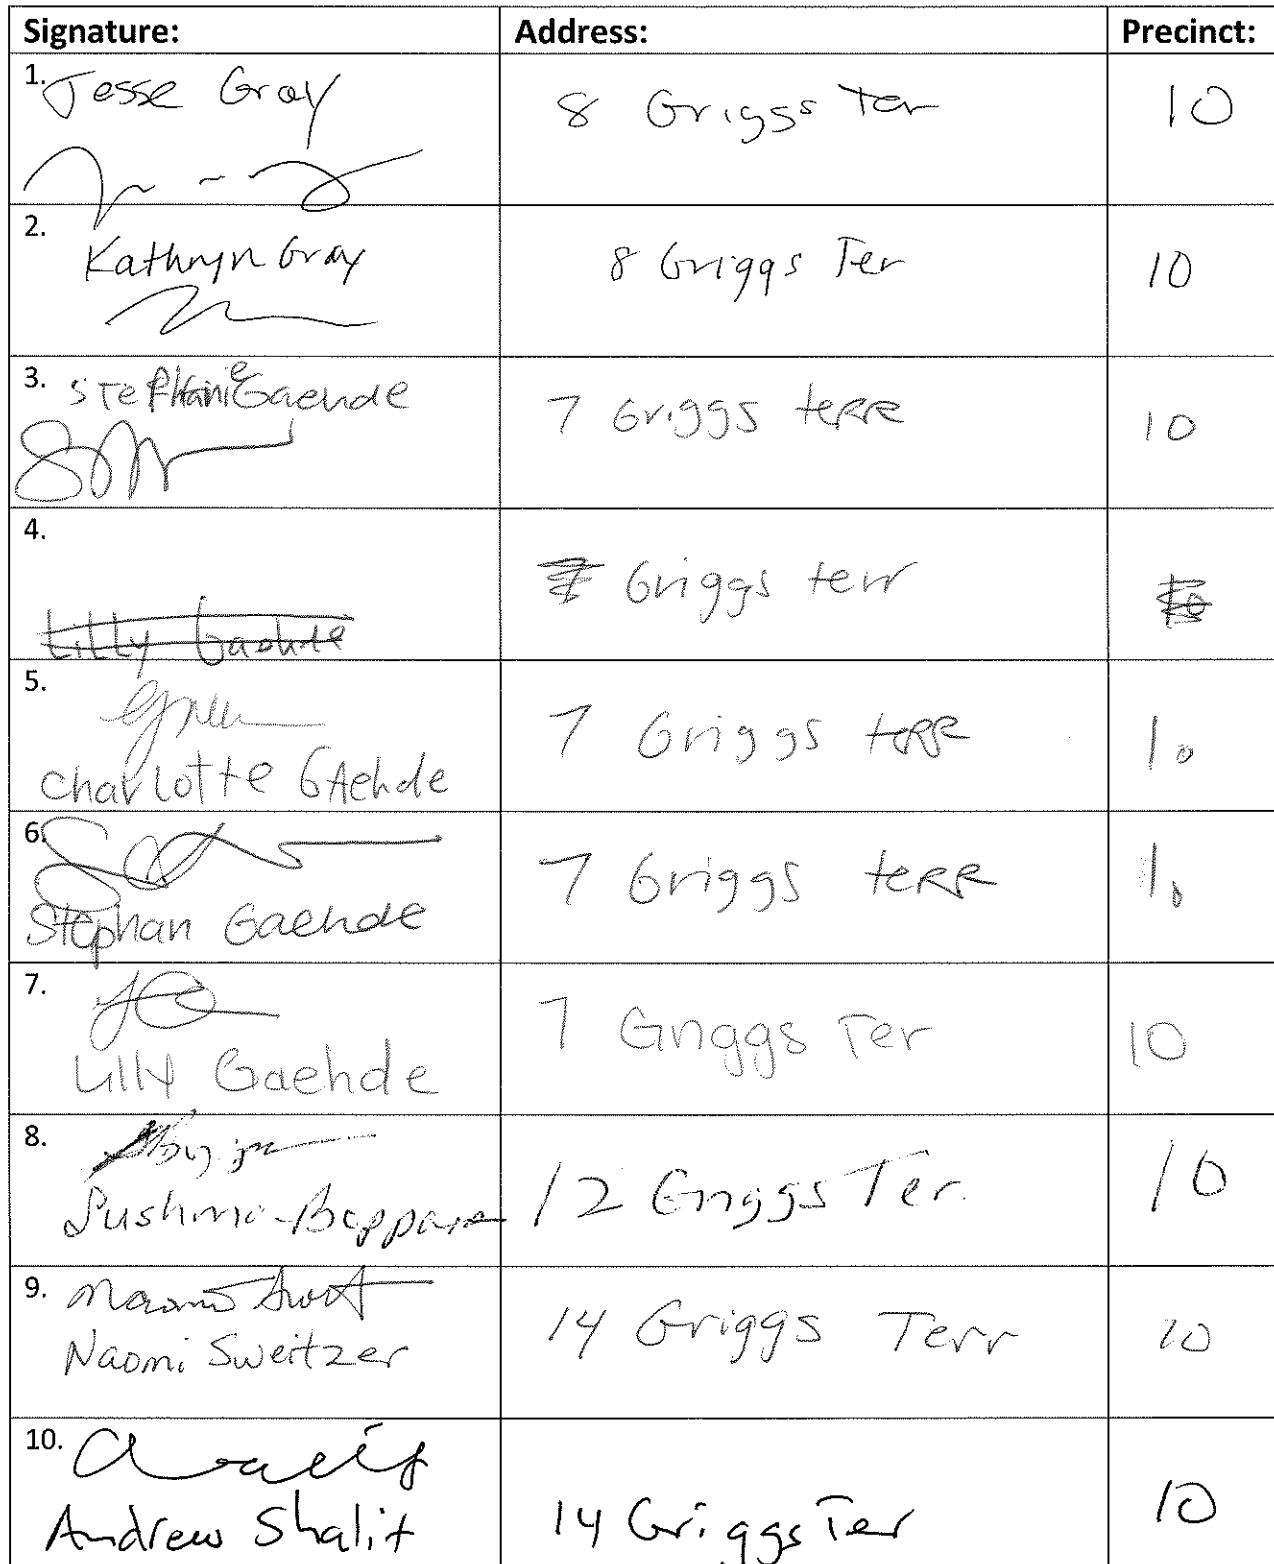 Signature: Address: Precinct:
1. Jesse Gray 8 Griggs Ter 10
2. Kathryn Gray 8 Griggs Ter 10
3. Stephanie Gaehde 7 Griggs terr 10
4. Griggs terr
Lilly Gaehde
5. 7 Griggs terr 10
Charlotte GAehde
6. 7 Griggs terr 10
Stephan Gaehde
7. 7 Griggs Ter 10
Lilly Gaehde
8. 12 Griggs Ter. 10
Sushma
9. 14 Griggs Terr 10
Naomi Sweitzer
10.
Andrew Shalit 14 Griggs Ter 10